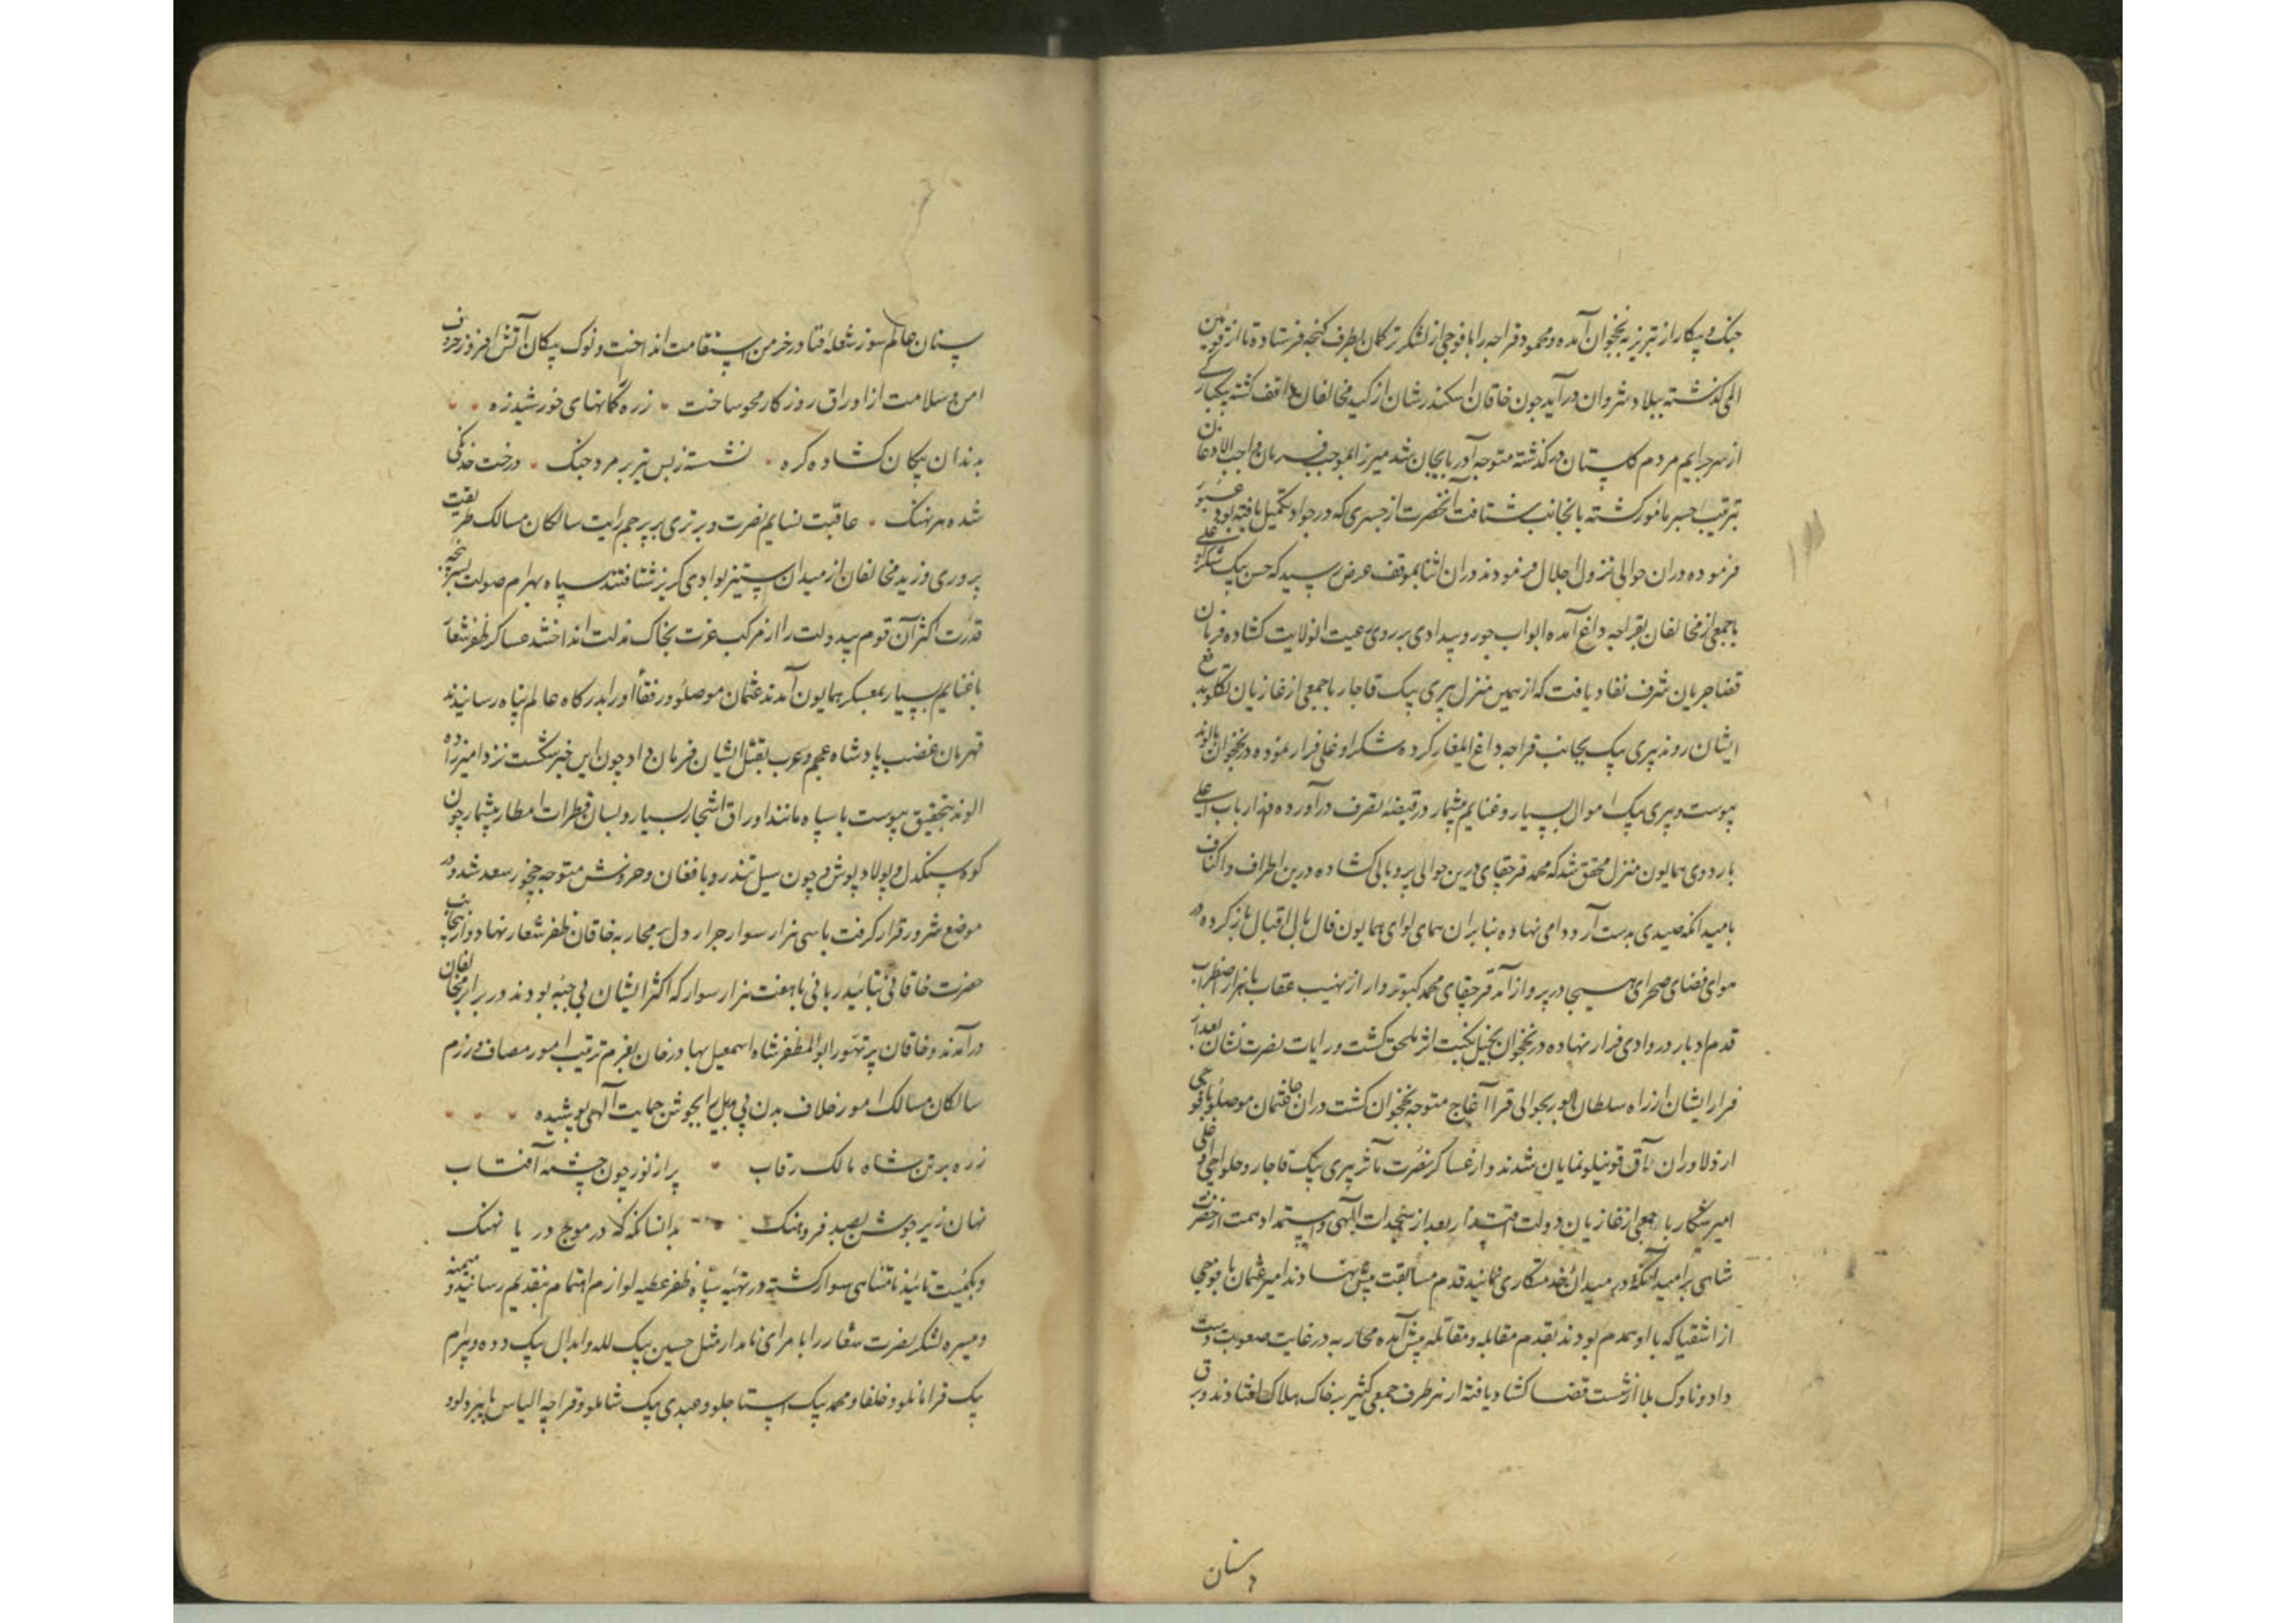 جنک و پیکار از تبریز به نخجوان آمده و محمود قراجه را با فوجی از لشکر ترکمان بطرف کنجه فرستاده تا از قویین
المی کذشته ببلاد شروان درآید چون خاقان اسکندرشان از کید مخالفان واقف کشته یکبارکی
از سر جرایم مردم کلستان در کذشته متوجه آذربایجان شد میرزا بموجب فرمان واجب الاذعان
بترتیب جسر مامور کشته بانجانب شتافت آنحضرت از جسری که در جواد تکمیل یافته بود عبور
فرموده دران حوالی نزول اجلال فرمودند دران اثنا بموقف عرض رسید که حسن بیک شکراوغلی
با جمعی از مخالفان بقراجه داغ آمده ابواب جور و بیدادی بر روی رعیت انولایت کشاده فرمان
قضا جریان شرف نفاد یافت که از همین منزل پیری بیک قاجار با جمعی از غازیان تکلو بدفع
ایشان روند پیری بیک بجانب قراجه داغ ایلغار کرده شکراوغلی فرار نموده در نخجوان بالوند
پیوست و پیری بیک اموال بسیار و غنایم بیشمار در قبضهٔ تصرف درآورده
باردوی همایون منزل محقق شد که محمد قرجقای درین حوالی پر و بالی کشاده درین اطراف و اکناف
بامید آنکه صیدی بدست آرد دامی نهاده بنابران همای لوای همایون فال بال اقبال باز کرده در
هوای فضای صحرای هیجا در پرواز آمد قرجقای محمد کبوتروار از نهیب عقاب با هزار اضطراب
قدم ادبار در وادی فرار نهاده در نخجوان بخیل نکبت اثر ملحق کشت و رایات نصرت نشان بعد از
فرار ایشان از راه سلطان بحوالی قرا آغاج متوجه نخجوان کشت دران جا عثمان موصلو با فوجی
از دلاوران آق قوینلو نمایان شدند و از عساکر نصرت مآثر پیری بیک قاجار و حلواجی اغلی
امیر شکار با جمعی از غازیان دولت اقتدار بعد از الهی و استمداد همت از حضرت
شاهی بر امید آنکه در میدان خدمتکاری نمایند قدم مسابقت پیش نهادند امیر عثمان با فوجی
از اشقیا که با او همدم بودند بقدم مقابله و مقاتله پیش آمده محاربه در غایت صعوبت دست
داد و ناوک بلا از شست قضا کشاد یافته از هر طرف جمعی کثیر بر خاک هلاک افتادند و برق
سنان
سنان عالم سوز شعله فنا در خرمن استقامت انداخت و نوک پیکان آتش افروز حروف
امن و سلامت از اوراق روزکار محو ساخت زره کمانهای خورشید زه
بدندان پیکان کشاده کره نشسته ز بس تیر بر مرد جنک درخت خدنکی
شده هر نهنک عاقبت نسایم نصرت و برتری بر پرچم رایت سالکان مسالک طریقت
پروری وزید مخالفان از میدان ستیز بوادی کریز شتافتند سپاه بهرام صولت بسرپنجه
قدرت اکثر آن قوم بیدولت را از مرکب عزت بخاک مذلت انداختند عساکر ظفر شعار
با غنایم بسیار بمعسکر همایون آمدند عثمان موصلو و رفقاء او را بدرکاه عالم پناه رسانیدند
قهرمان غضب پادشاه عجم و عرب بقتل ایشان فرمان داد چون این خبر شکست نزد امیرزاده
الوند بتحقیق پیوست با سپاه مانند اوراق اشجار بسیار و بسان قطرات امطار بیشمار چون
کوه سنکدل و پولاد پوش و چون سیل تندرو با فغان و خروش متوجه جخور سعد شد و در
موضع شرور قرار کرفت با سی هزار سوار جرار دل بر محاربه خاقان ظفر شعار نهاد و از انجانب
حضرت خاقانی بتائید ربانی با هفت هزار سوار که اکثر ایشان بی جبه بودند در برابر مخالفان
درآمدند و خاقان پر تهور ابوالمظفر شاه اسمعیل بهادرخان بعزم ترتیب امور مصاف و رزم
سالکان مسالک امور خلاف بدن بی بدیل را بجوشن حمایت الهی پوشیده
زره بر تن شاه مالک رقاب پر از نور چون چشمه آفتاب
نهان زیر جوشن بصد فر و هنک بدانسانکه در موج دریا نهنک
و بکمیت تائید نامتناهی سوار کشته در تهیه سپاه ظفر عطیه لوازم اهتمام بتقدیم رسانید و میمنه
و میسره لشکر نصرت شعار را بامرای نامدار مثل حسین بیک لله و ابدال بیک دده و بیرام
بیک قرامانلو و خلفا و محمد بیک استاجلو و عبدی بیک شاملو و قراجه الیاس بایبردلو